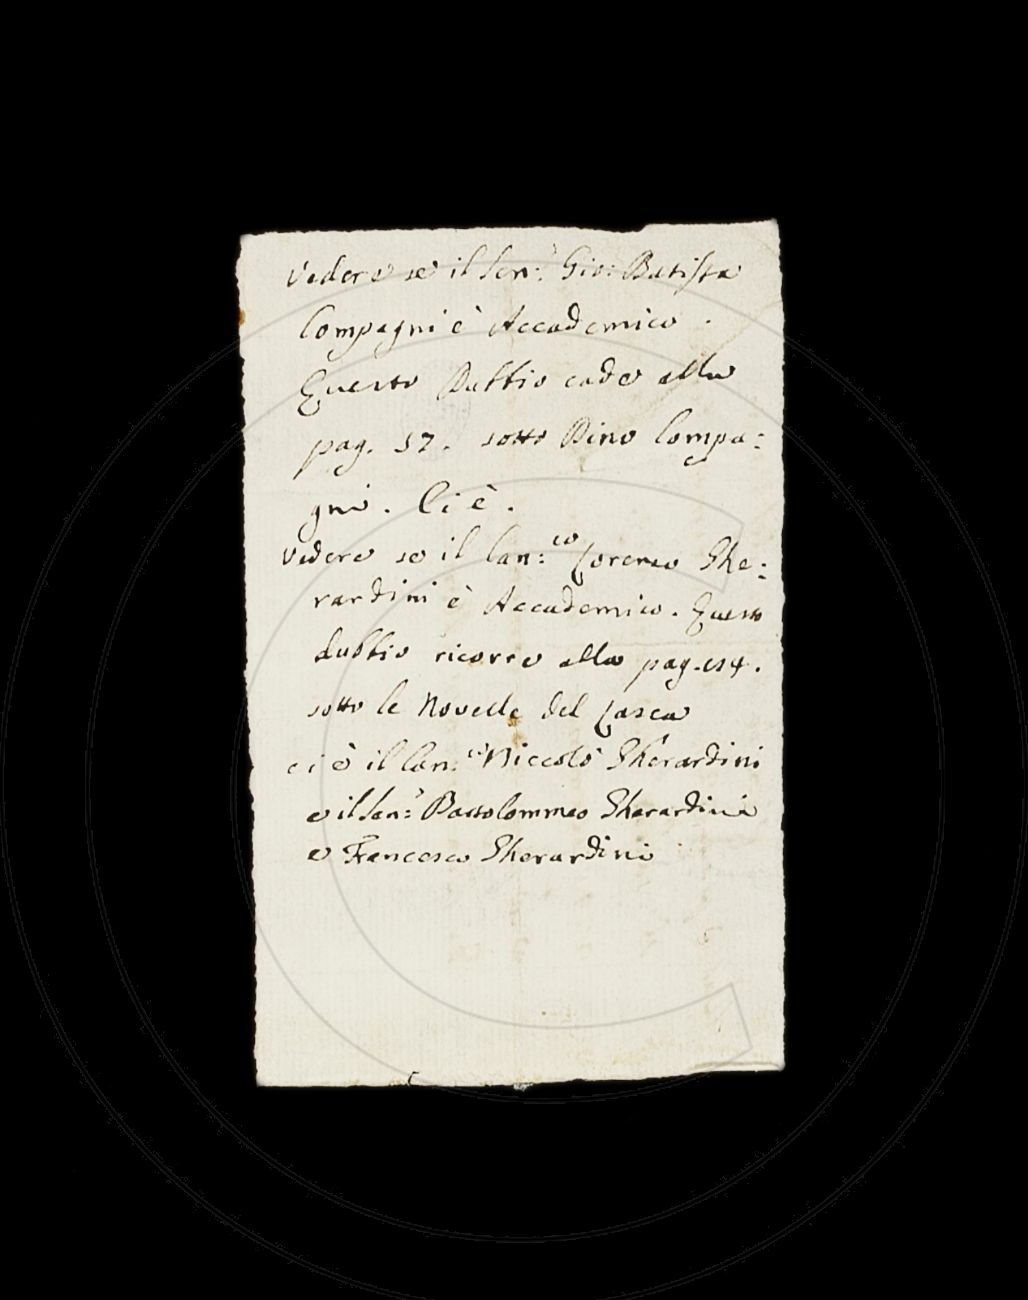 Vedere se il Sen.e Gio: Batista
Compagni è Accademico.
Questo Dubbio cade alla
pag. 57. sotto Dino Compa:
gni. Ci è.
Vedere se il Can:co Lorenzo Ghe:
rardini è Accademico. Questo
dubbio ricorre alla pag. 154.
sotto le Novelle del Lasca
ci è il Can.co Niccolò Gherardini
e il Sen: Bartolommeo Gherardini
e Francesco Gherardini